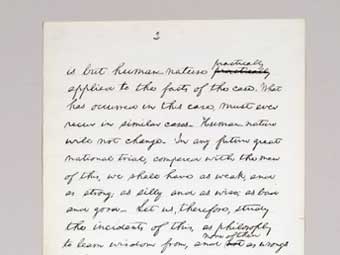 3
is but human-nature practically practically
applied to the facts of the case. What
has occurred in this case, must ever
recur in similar cases. Human-nature
will not change. In any future great
national trial, compared with the men
of this, we shall have as weak, and
as strong; as silly and as wise; as bad
and good. Let us, therefore, study
the incidents of this, as philosophy
to learn wisdom from, and not none of them as wrongs